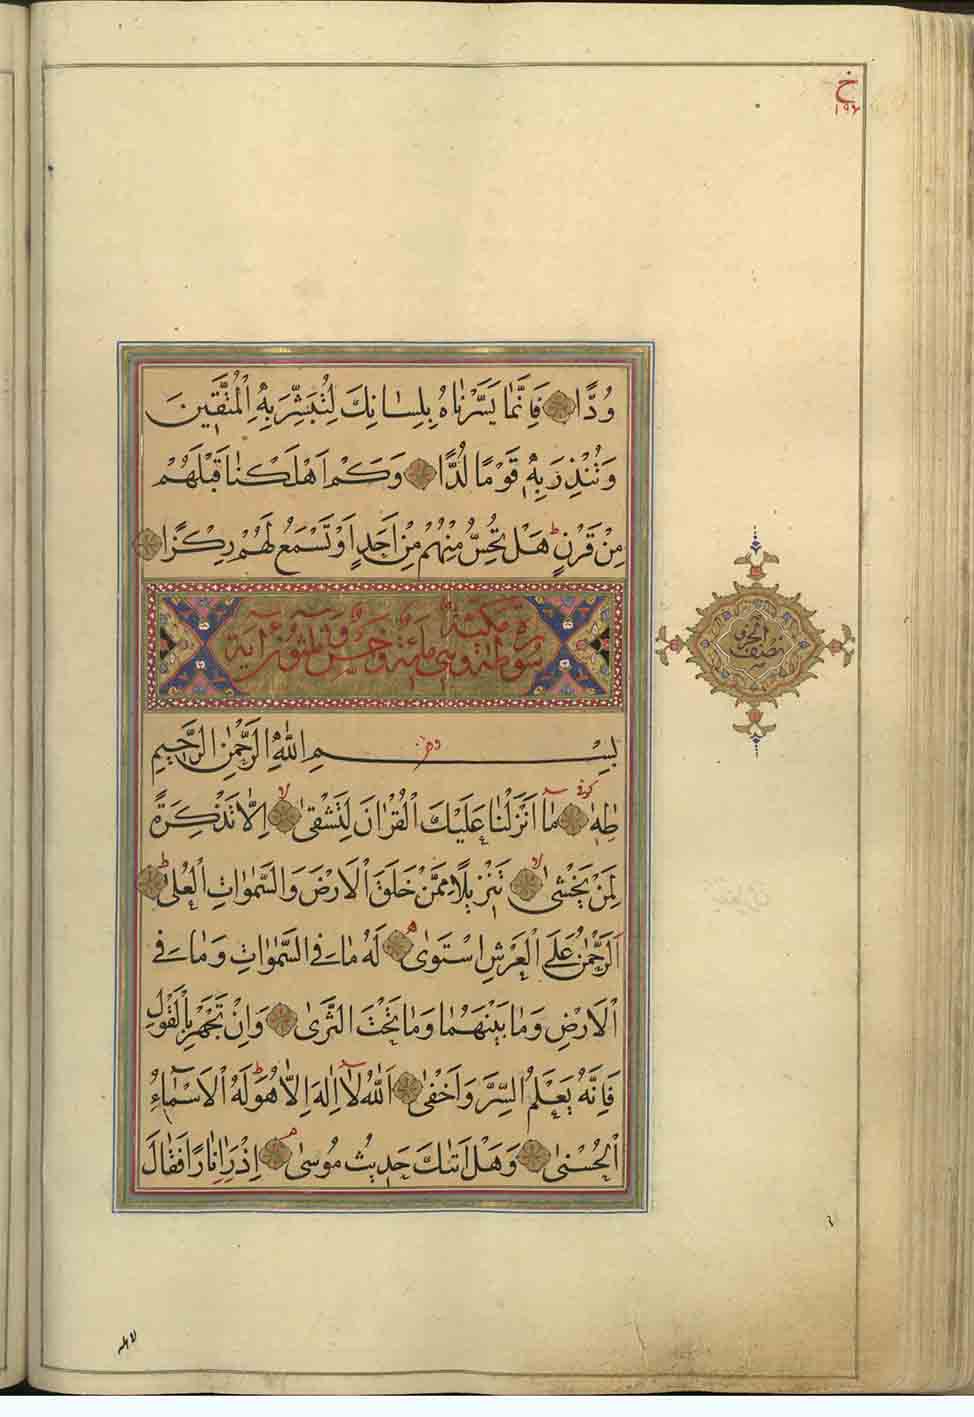 خ
١٩٦
وُدًّا فَاِنَّمَا يَسَّرْنَاهُ بِلِسَانِكَ لِتُبَشِّرَ بِهِ الْمُتَّقِينَ
وَتُنْذِرَ بِهٖ قَوْمًا لُدًّا وَكَمْ اَهْلَكْنَا قَبْلَهُمْ
مِنْ قَرْنٍ ط هَلْ تُحِسُّ مِنْهُمْ مِنْ اَحَدٍ اَوْ تَسْمَعُ لَهُمْ رِكْزًا
سورة طه مكية وهى مائة وخمس وثلثون آية
نصف الحزب
بِسْمِ اللّٰهِ الرَّحْمٰنِ الرَّحِيمِ
طٰهٰ كوفى مَٓا اَنْزَلْنَا عَلَيْكَ الْقُرْاٰنَ لِتَشْقٰى لا اِلَّا تَذْكِرَةً
لِمَنْ يَخْشٰى لا تَنْزِيلًا مِمَّنْ خَلَقَ الْاَرْضَ وَالسَّمٰوَاتِ الْعُلٰى ط
اَلرَّحْمٰنُ عَلَى الْعَرْشِ اسْتَوٰى لَهُ مَا فِى السَّمٰوَاتِ وَمَا فِى
الْاَرْضِ وَمَا بَيْنَهُمَا وَمَا تَحْتَ الثَّرٰى وَاِنْ تَجْهَرْ بِالْقَوْلِ
فَاِنَّهُ يَعْلَمُ السِّرَّ وَاَخْفٰى اَللّٰهُ لَٓا اِلٰهَ اِلَّا هُوَ ط لَهُ الْاَسْمَٓاءُ
الْحُسْنٰى وَهَلْ اَتٰىكَ حَدِيثُ مُوسٰى م اِذْ رَاٰ نَارًا فَقَالَ